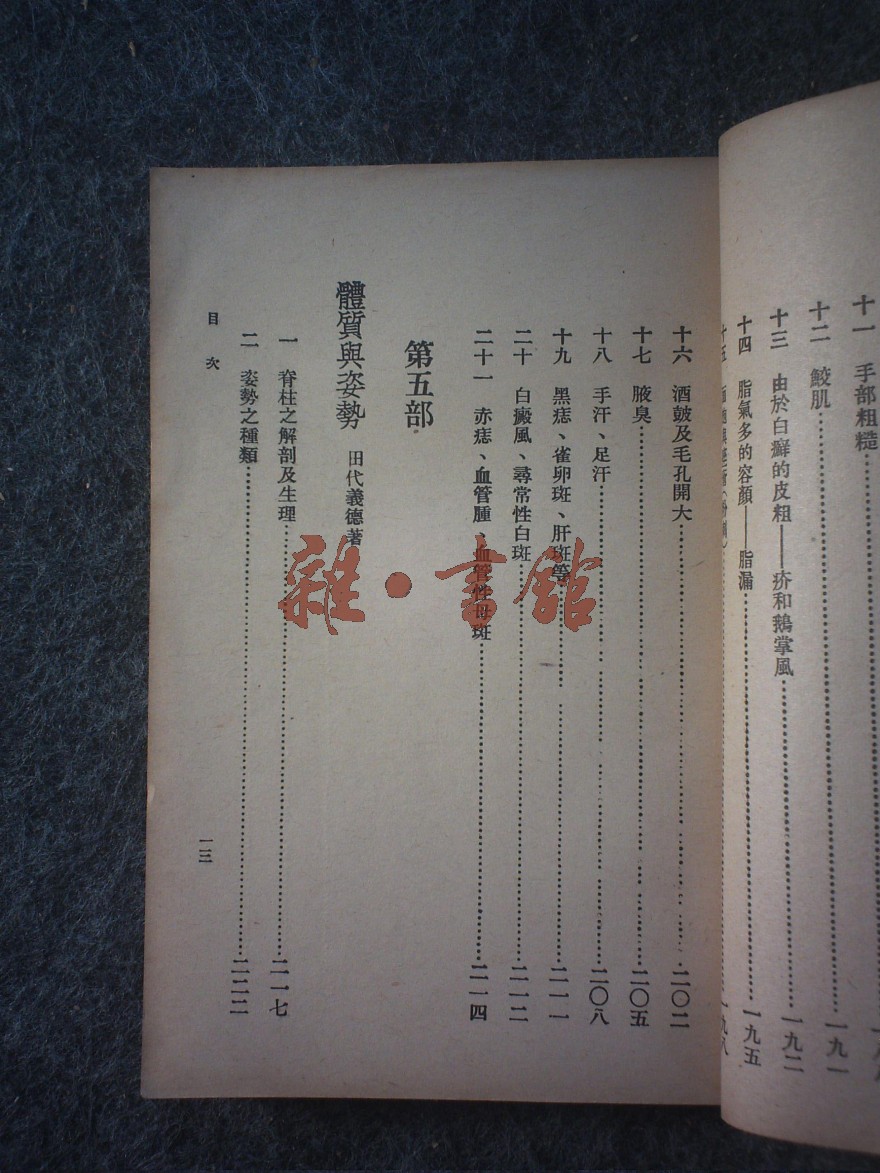 十一　手部粗糙
十二　鮫肌……一九一
十三　由於白癬的皮粗——疥和鵝掌風……一九二
十四　脂氣多的容顏——脂漏……一九五
十五……一九八
十六　酒皶及毛孔開大……二〇二
十七　腋臭……二〇五
十八　手汗、足汗……二〇八
十九　黑痣、雀卵斑、肝斑等……二一一
二十　白癜風、尋常性白斑……二一二
二十一　赤痣、血管腫、血管性母斑……二一四
第五部
體質與姿勢　田代義德著
一　脊柱之解剖及生理……二一七
二　姿勢之種類……二二二
目次
一三
雜·書館